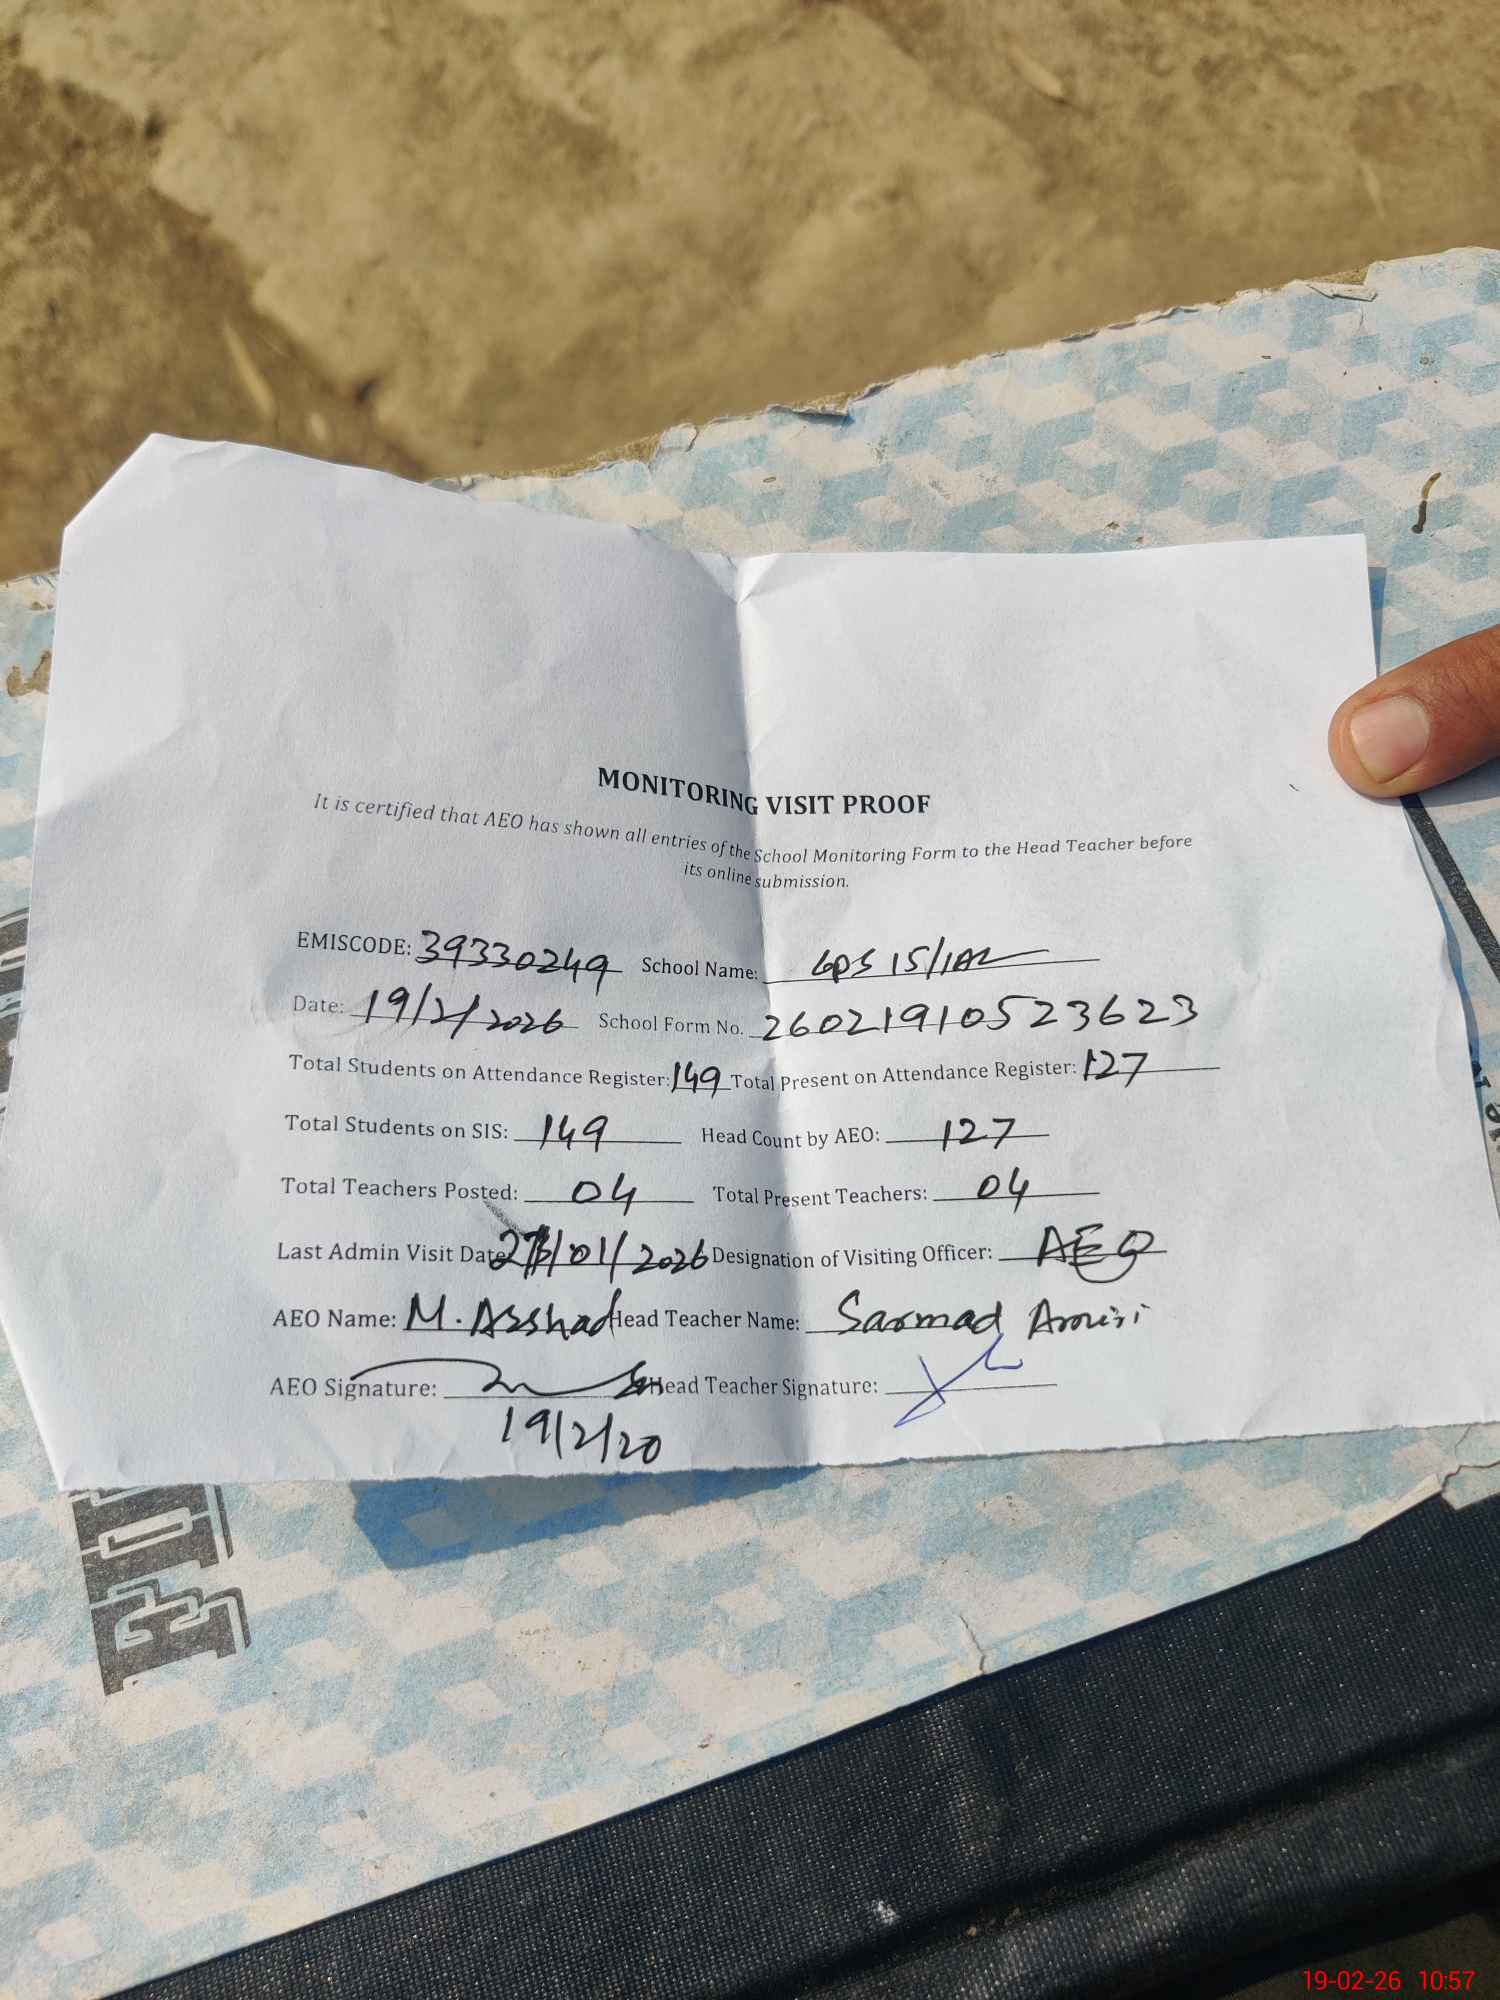 MONITORING VISIT PROOF
It is certified that AEO has shown all entries of the School Monitoring Form to the Head Teacher before
its online submission.
EMISCODE: 39330249 School Name: GPS 15/1AL
Date: 19/2/2026 School Form No. 26021910523623
Total Students on Attendance Register: 149 Total Present on Attendance Register: 127
Total Students on SIS: 149 Head Count by AEO: 127
Total Teachers Posted: 04 Total Present Teachers: 04
Last Admin Visit Date /01/2026 Designation of Visiting Officer: AEO
AEO Name: M. Asshad Head Teacher Name: Sarmad
AEO Signature: Head Teacher Signature:
19/2/20
19-02-26 10:57